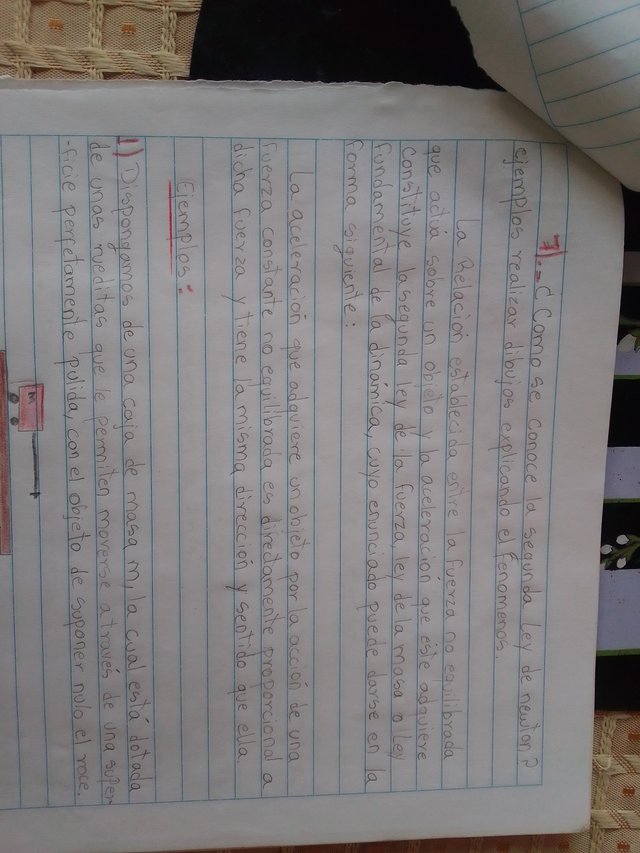 7).- ¿Como se conoce la segunda Ley de newton?
ejemplos realizar dibujos explicando el fenomenos.
La Relación establecida entre la fuerza no equilibrada
que actúa sobre un objeto y la aceleración que éste adquiere
constituye la segunda ley de la fuerza, ley de la masa o ley
fundamental de la dinámica, cuyo enunciado puede darse en la
forma siguiente:
La aceleración que adquiere un objeto por la acción de una
fuerza constante no equilibrada es directamente proporcional a
dicha fuerza y tiene la misma dirección y sentido que ella.
Ejemplos:
1) Dispongamos de una caja de masa m, la cual está dotada
de unas rueditas que le permiten moverse a través de una super
-ficie perfetamente pulida, con el objeto de suponer nulo el roce.
m